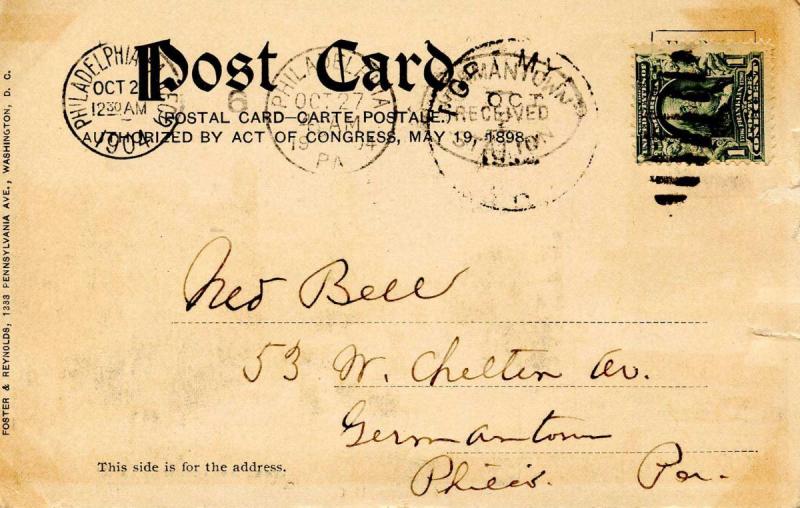 Post Card
(POSTAL CARD—CARTE POSTALE.)
AUTHORIZED BY ACT OF CONGRESS, MAY 19, 1898.
PHILADELPHIA
OCT 2
12 30 AM
1904
6
PHILADELPHIA
OCT 27
AM
19 04
PA
OCT
RECEIVED
1
1
Ned Bell
53 W. Chelten Av.
Germantown
Phila. Pa.
This side is for the address.
FOSTER & REYNOLDS, 1333 PENNSYLVANIA AVE., WASHINGTON, D. C.